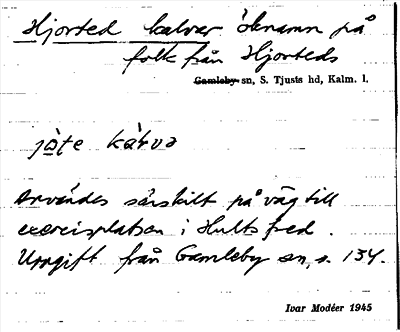 Hjorted kalvar öknamn på
folk från Hjorteds
Gamleby sn, S. Tjusts hd, Kalm. l.
jòte kàrva
användes särskilt på väg till
exercisplatsen i Hultsfred.
Uppgift från Gamleby sn, s. 134.
Ivar Modéer 1945